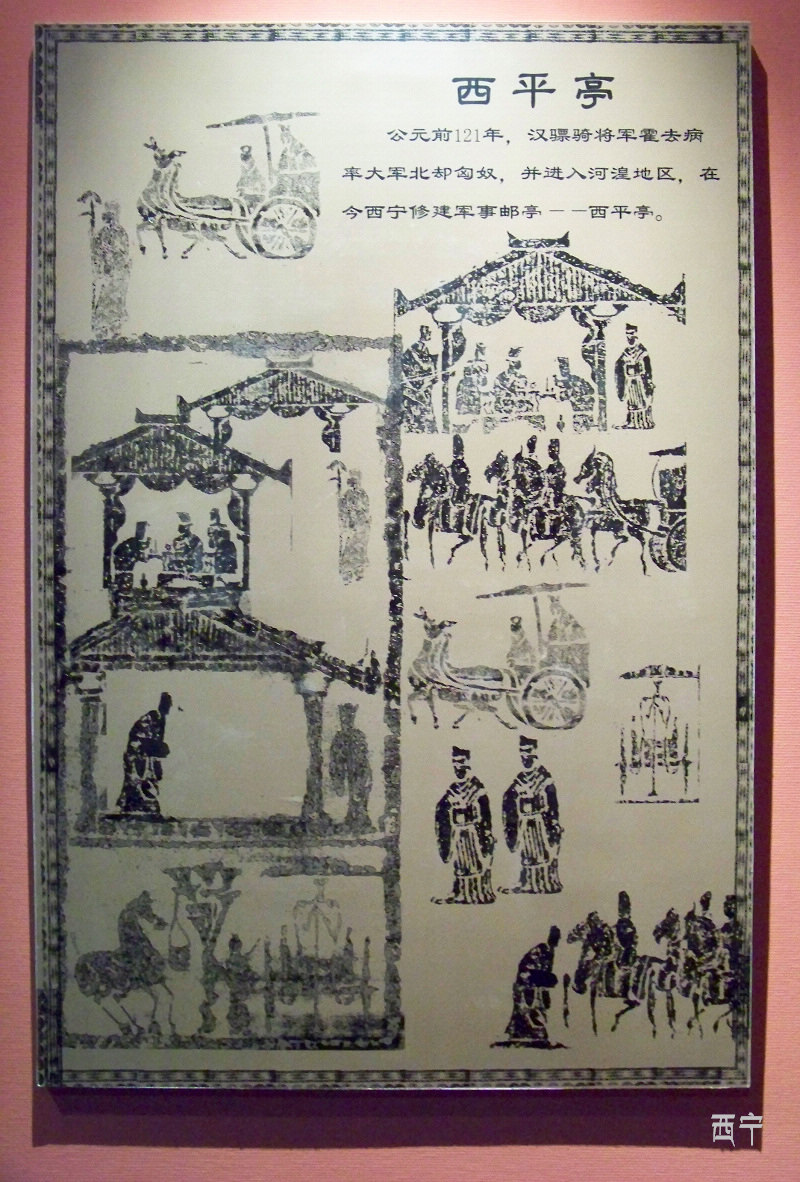 西平亭
公元前121年，汉骠骑将军霍去病
率大军北却匈奴，并进入河湟地区，在
今西宁修建军事邮亭－－西平亭。
西宁